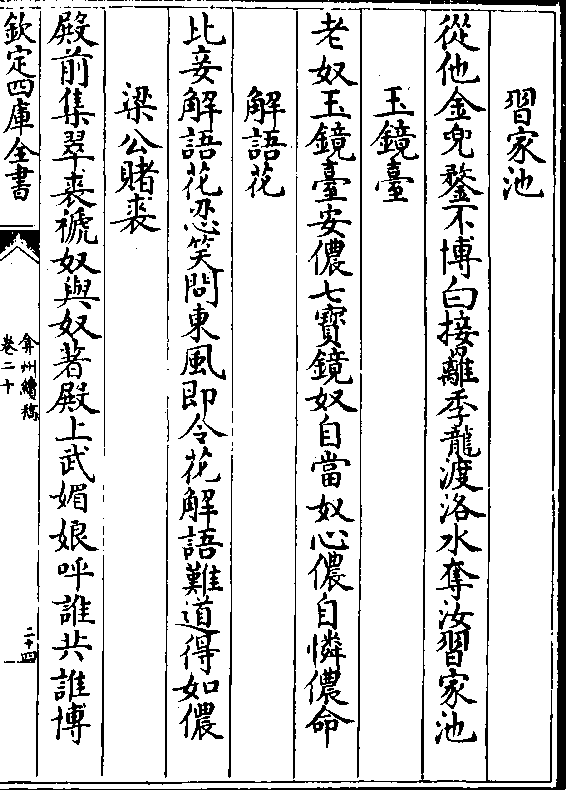 習家池
從他金兜鍪不博白接䍦季龍渡洛水奪汝習家池
玉鏡臺
老奴玉鏡臺安儂七寶鏡奴自當奴心儂自憐儂命
解語花
比妾解語花恐笑問東風即令花解語難道得如儂
梁公賭裘
殿前集翠裘褫奴與奴著殿上武媚娘呼誰共誰博
欽定四庫全書
弇州續稿
卷二十
二十四